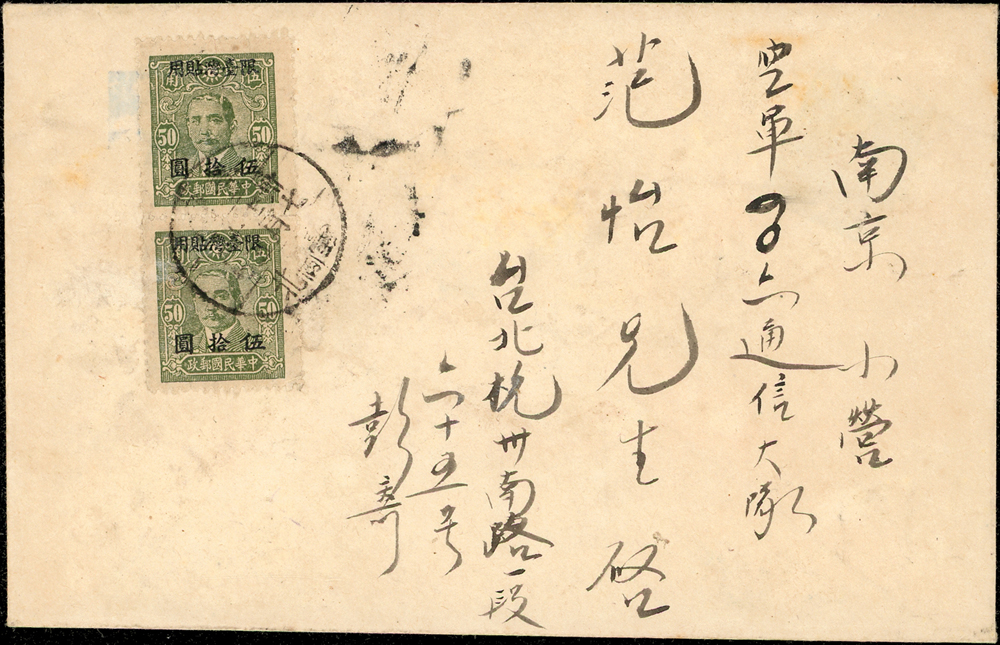 南京 小營
空軍 六通信大隊
范怡先生啓
台北杭州南路一段
六十五号
彭寄
限臺灣貼用
伍 角
50 50
伍拾圓
中華民國郵政
限臺灣貼用
50 50
伍拾圓
中華民國郵政